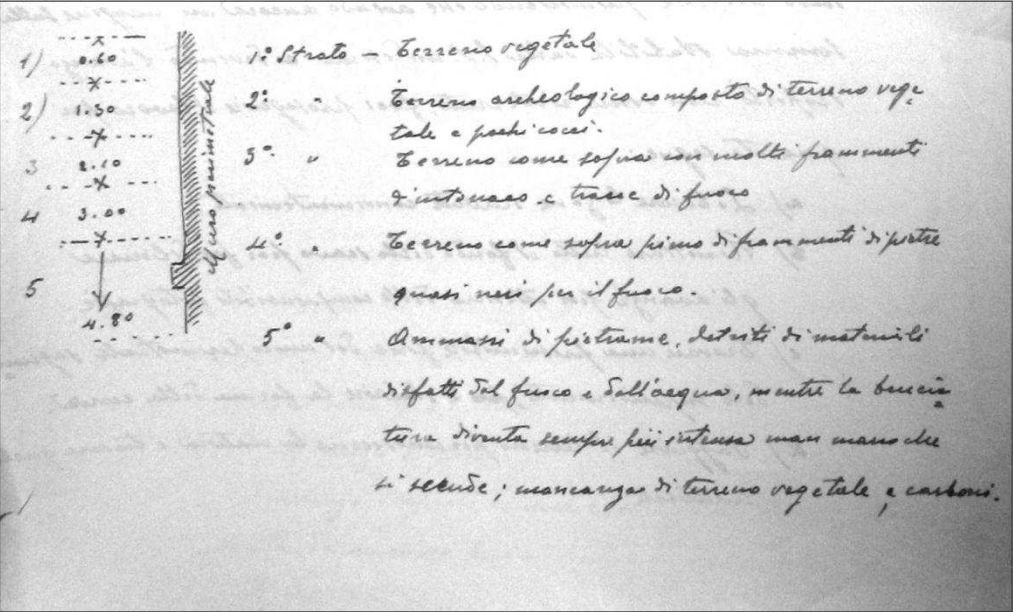 1) 0.60
2) 1.30
3 2.10
4 3.00
5
4.80
Muro perimetrale
1º Strato – Terreno vegetale
2º " Terreno archeologico composto di terreno vege-
tale e pochi cocci.
3º " Terreno come sopra con molti frammenti
d'intonaco e tracce di fuoco
4º " Terreno come sopra pieno di frammenti di pietre
quasi neri per il fuoco.
5º " Ammassi di pietrame, detriti di materiali
disfatti dal fuoco e dall'acqua, mentre la brucia
tura diventa sempre più intensa man mano che
si scende; mancanza di terreno vegetale, e carboni.